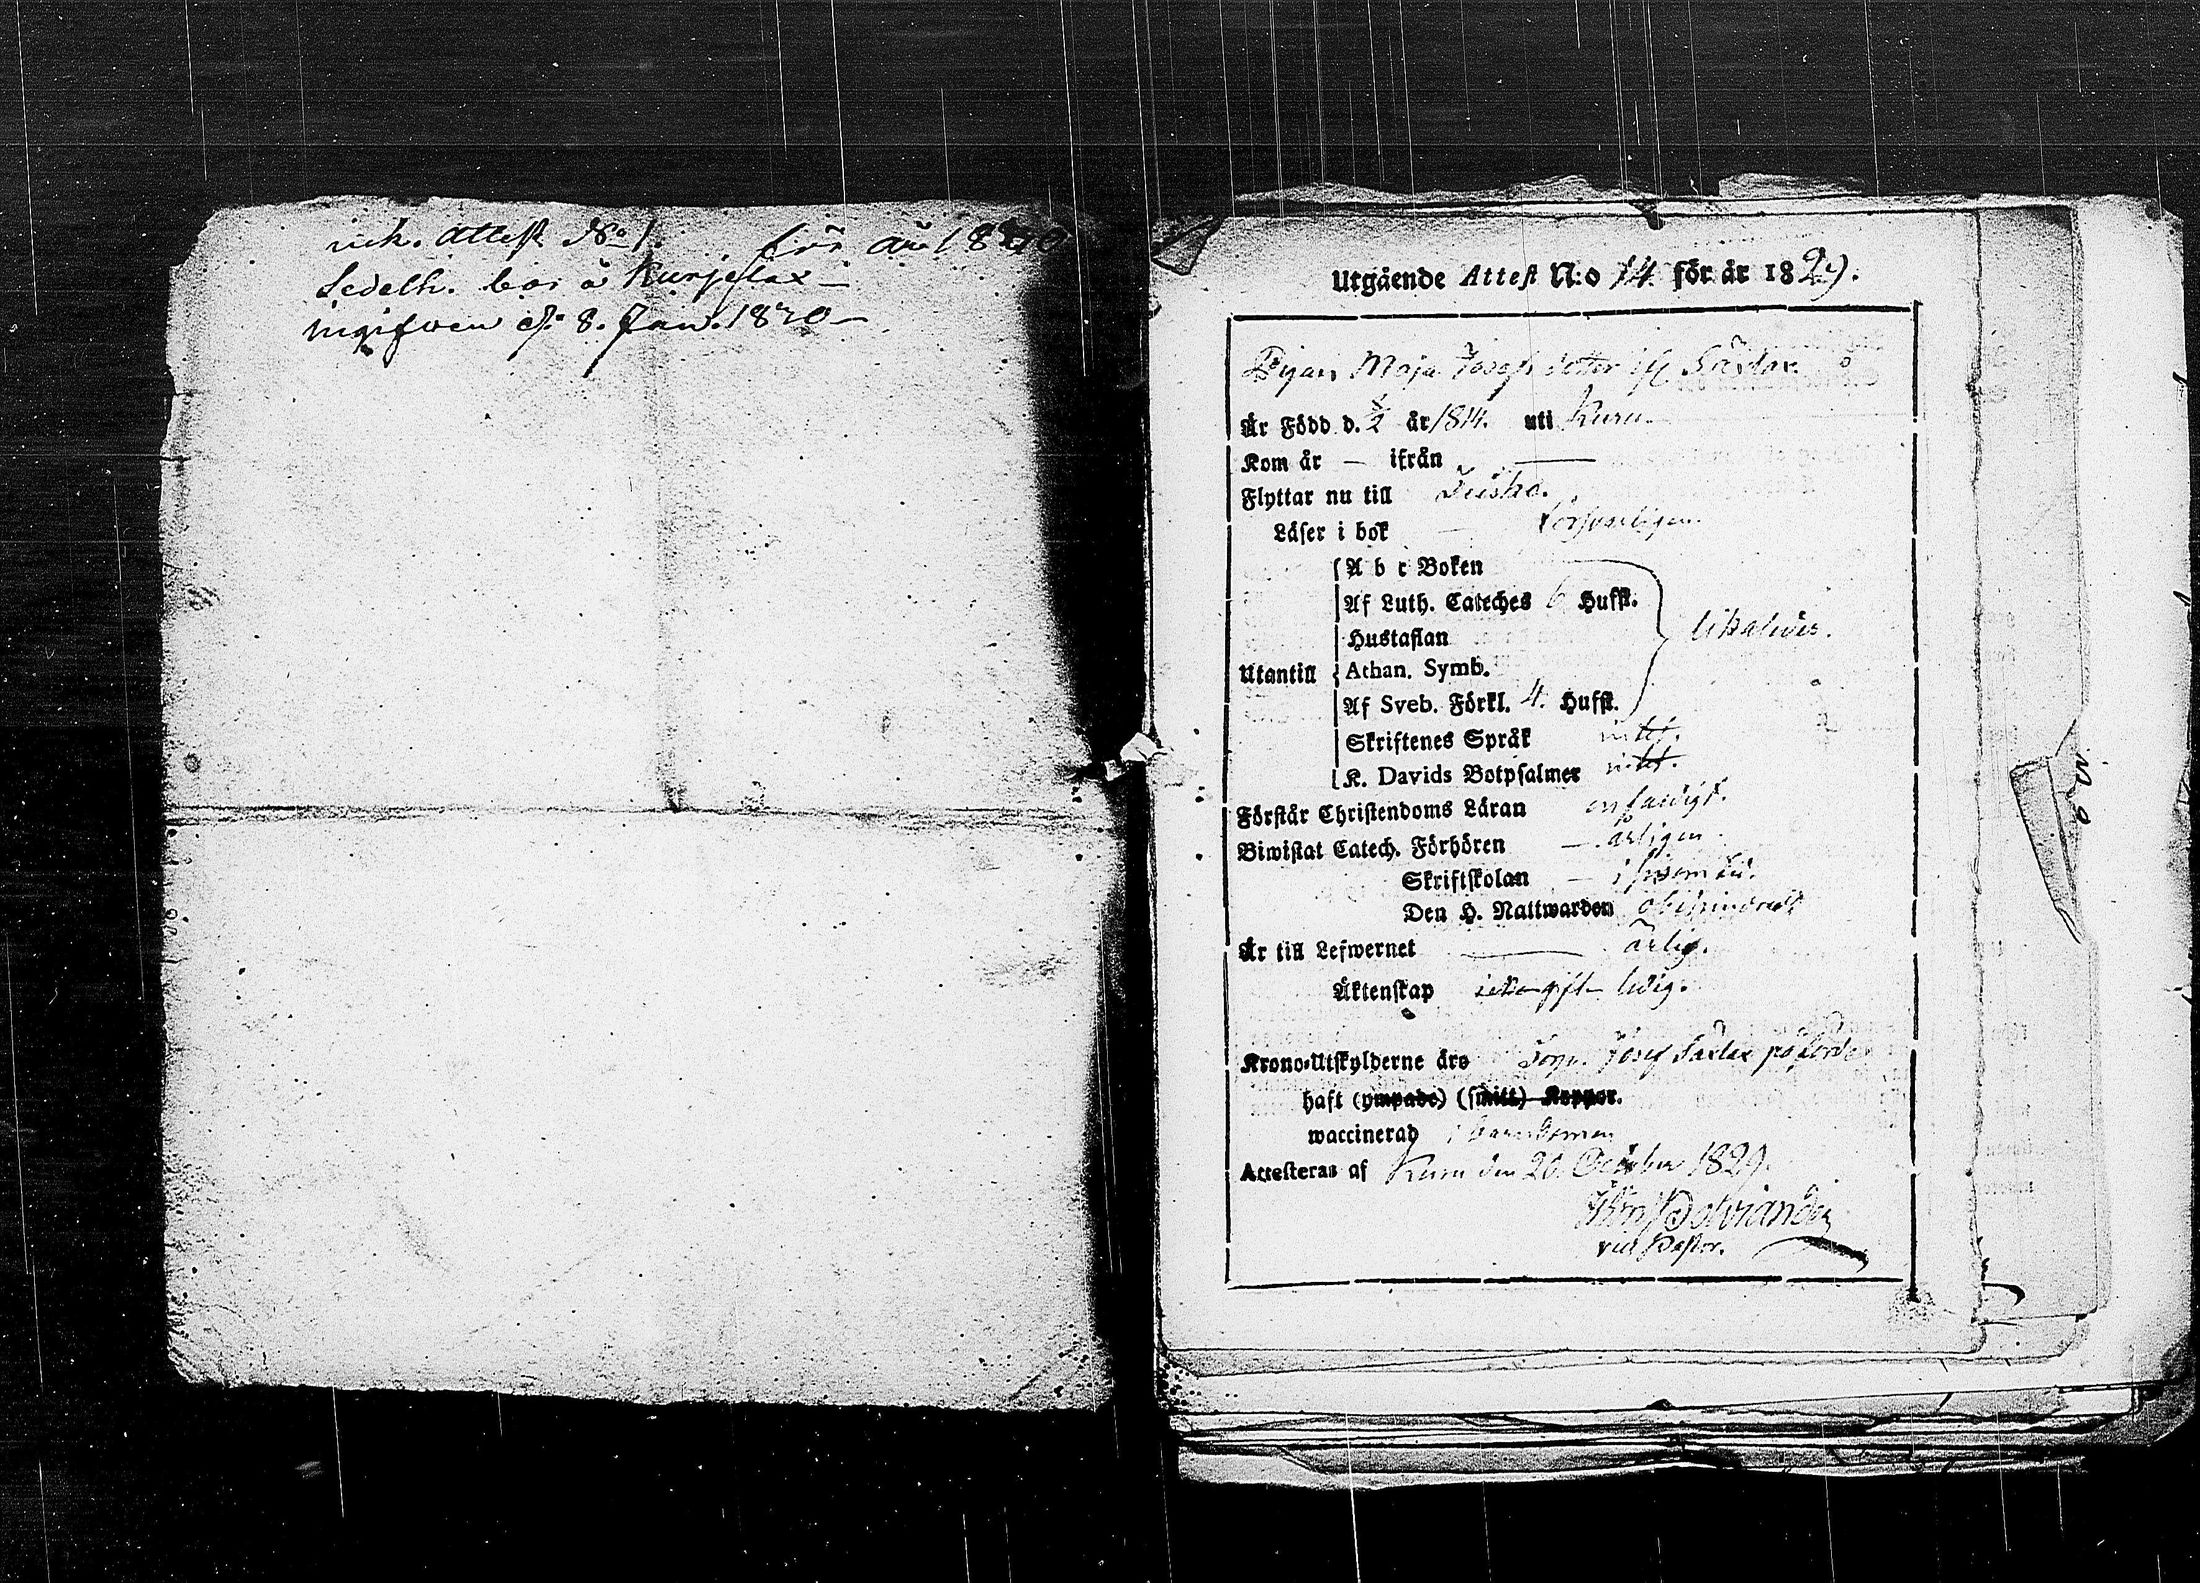 ink. Attest No 1. för år 1830
Sedelh. bor å Kurjeslax
ingifwen d. 8. Jan. 1830
Utgående Attest N:o 14 för år 1829.
Pigan Maja Josefsdotter
Är Född d. år 1814. uti Kuru
Kom år — ifrån —
Flyttar nu till
Läser i bok — försvarligen
A b c Boken
Af Luth. Cateches 6 Hufst.
Hustaflan
likaledes.
Utantill Athan. Symb.
Af Sveb. Förkl. 4. Hufst.
Skriftenes Språk intet.
K. Davids Botpsalmer intet.
Förstår Christendoms Läran enfaldigt.
Biwistat Catech. Förhören — årligen.
Skriftskolan —
Den H. Nattwarden obehindradt
Är till Lefwernet — ärlig.
Äktenskap icke gift ledig.
Krono-Utskylderne äro Josef
haft (ympade) (smitt) Koppor.
waccinerad i barndomen
Attesteras af Kuru den 20. October 1829.
vice Pastor.